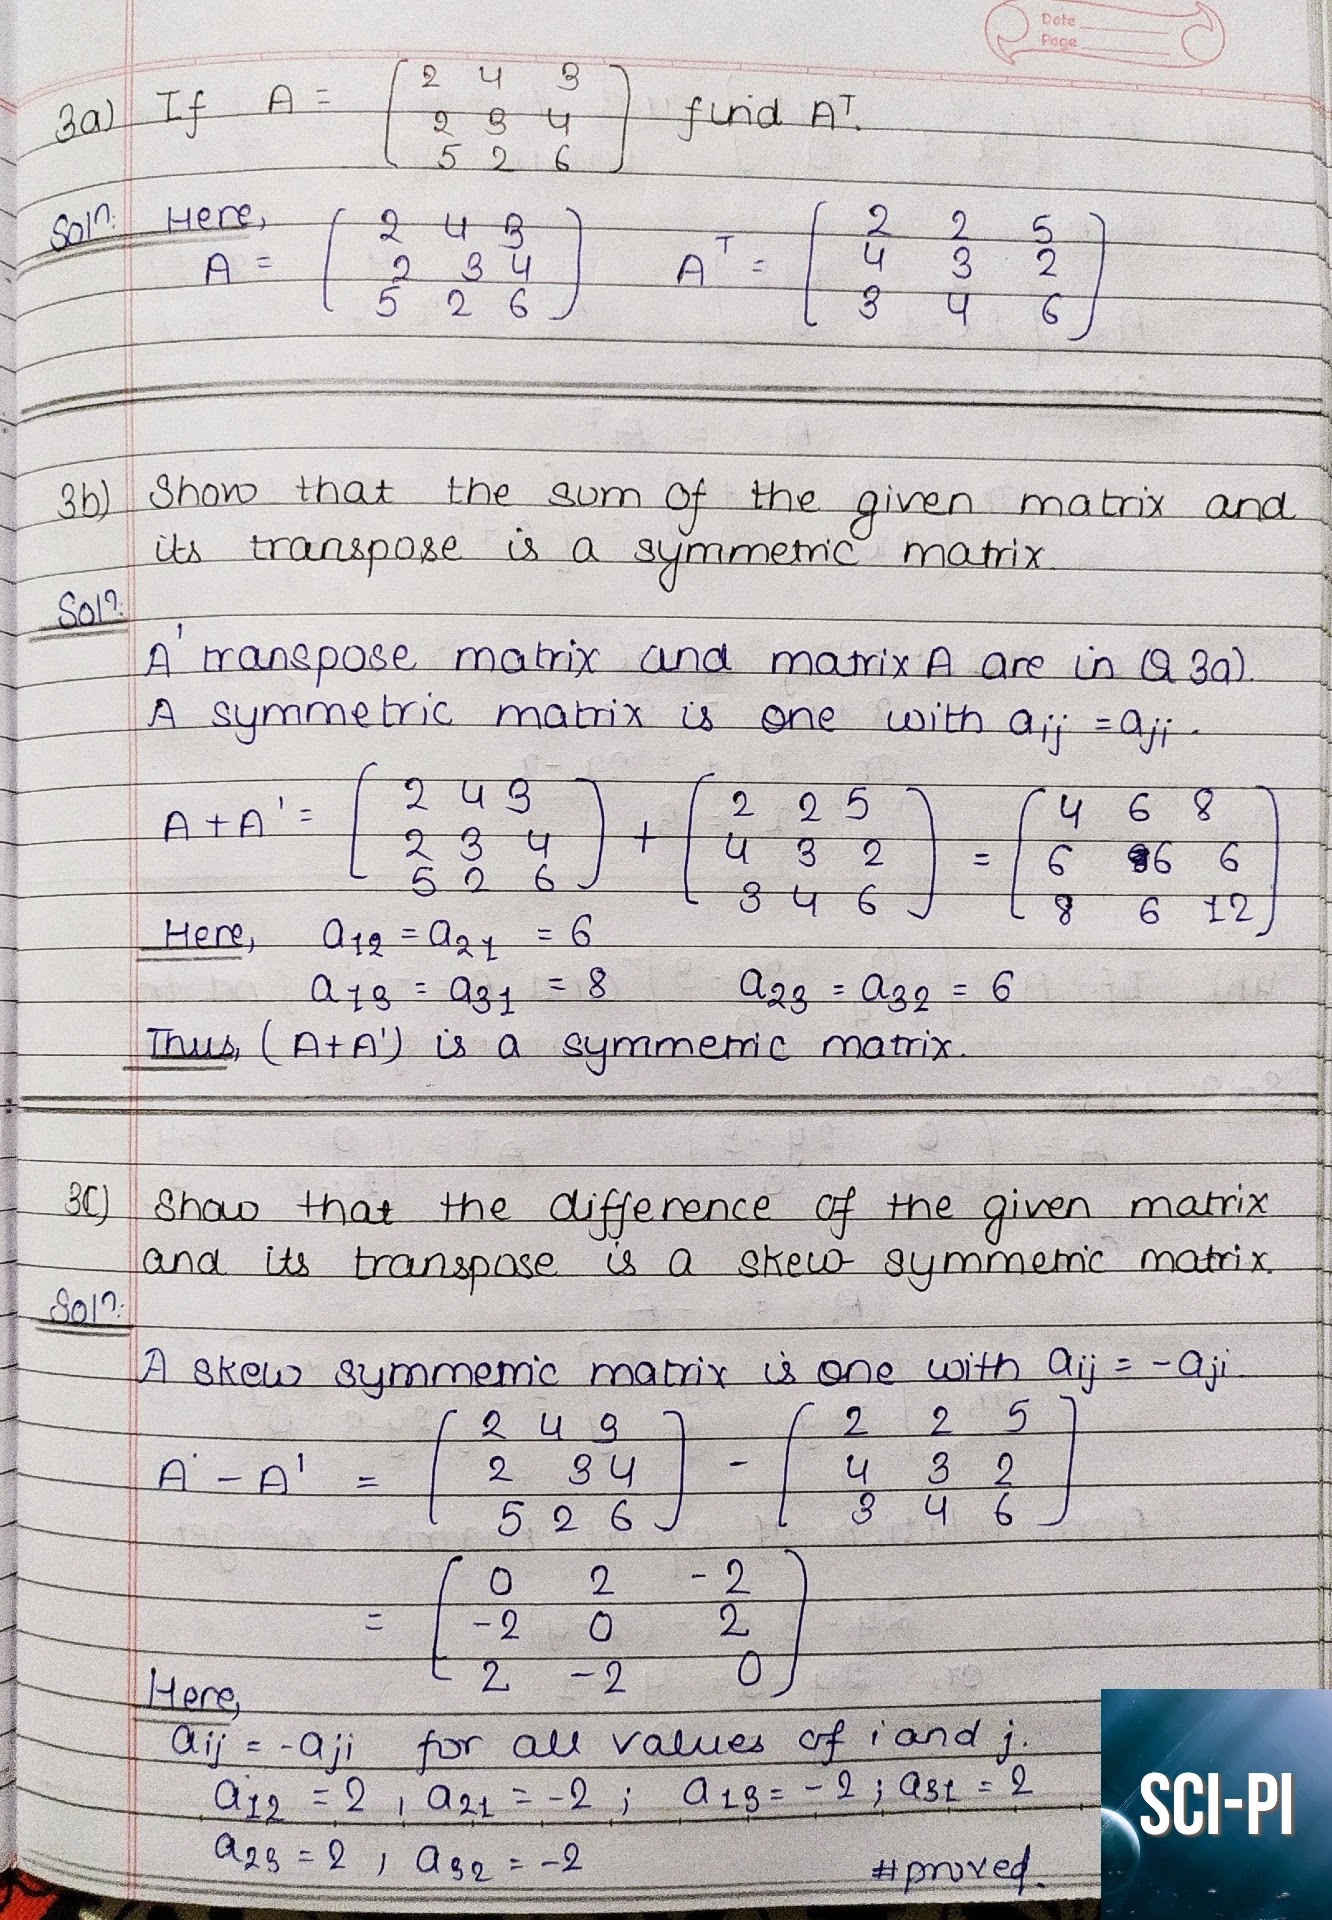 Date
Page
3a) If A = [2 4 3
2 3 4
5 2 6] find Aᵀ.
Solⁿ: Here,
A = [2 4 3
2 3 4
5 2 6] Aᵀ = [2 2 5
4 3 2
3 4 6]
3b) Show that the sum of the given matrix and
its transpose is a symmetric matrix.
Solⁿ:
A' transpose matrix and matrix A are in Q 3a).
A symmetric matrix is one with aij = aji.
A + A' = [2 4 3
2 3 4
5 2 6] + [2 2 5
4 3 2
3 4 6] = [4 6 8
6 6 6
8 6 12]
Here, a12 = a21 = 6
a13 = a31 = 8 a23 = a32 = 6
Thus, (A+A') is a symmetric matrix.
3c) Show that the difference of the given matrix
and its transpose is a skew symmetric matrix.
Solⁿ:
A skew symmetric matrix is one with aij = -aji.
A - A' = [2 4 3
2 3 4
5 2 6] - [2 2 5
4 3 2
3 4 6]
= [0 2 -2
-2 0 2
2 -2 0]
Here,
aij = -aji for all values of i and j.
a12 = 2, a21 = -2; a13 = -2; a31 = 2
a23 = 2, a32 = -2
#proved.
SCI-PI